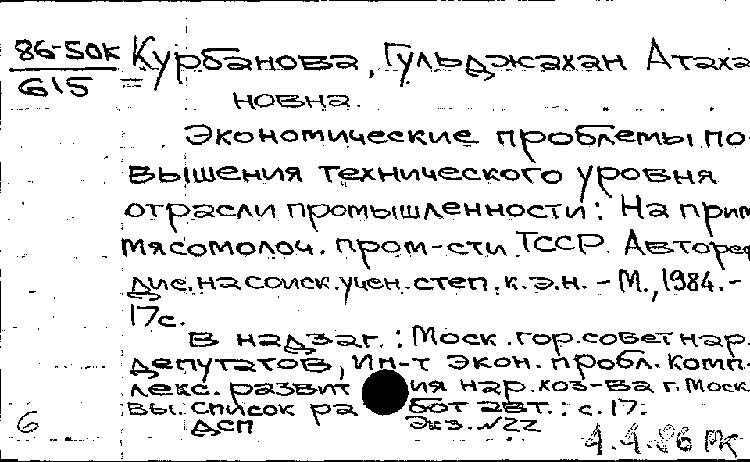 86-50к Курбанова, Гульджахан Атаха
615 новна.
Экономические проблемы по-
вышения технического уровня
отрасли промышленности: На прим
мясомолоч. пром-сти ТССР. Автореф
дис. на соиск. учен. степ. к.э.н. - М., 1984. -
17с.
В надзаг.: Моск. гор. совет нар.
депутатов, Ин-т экон. пробл. комп-
лекс. развития нар. хоз-ва г. Моск
вы. Список работ авт.: с. 17.
6 ДСП Экз. №22
4.4.86 РК